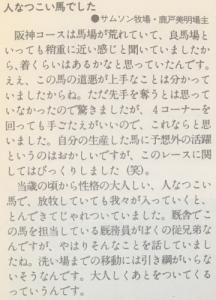 人なつこい馬でした
●サムソン牧場・鹿戸美明場主
阪神コースは馬場が荒れていて、良馬場と
いっても稍重に近い感じと聞いていましたか
ら、着くらいはあるかなと思っていたんです。
ええ、この馬の道悪が上手なことは分かって
いましたからね。ただ先手を奪うとは思って
いなかったので驚きましたが、4コーナーを
回っても手ごたえがいいので、これならと思
いました。自分の生産した馬に予想外の活躍
というのはおかしいですが、このレースに関
してはびっくりしました（笑）。
当歳の頃から性格の大人しい、人なつこい
馬で、放牧していても我々が入っていくと、
とんできてじゃれついていました。厩舎でこ
の馬を担当している厩務員がぼくの従兄弟な
んですが、やはりそんなことを話していまし
たね。洗い場までの移動には引き綱がいらな
いそうなんです。大人しくあとをついてくる
っていうんです。